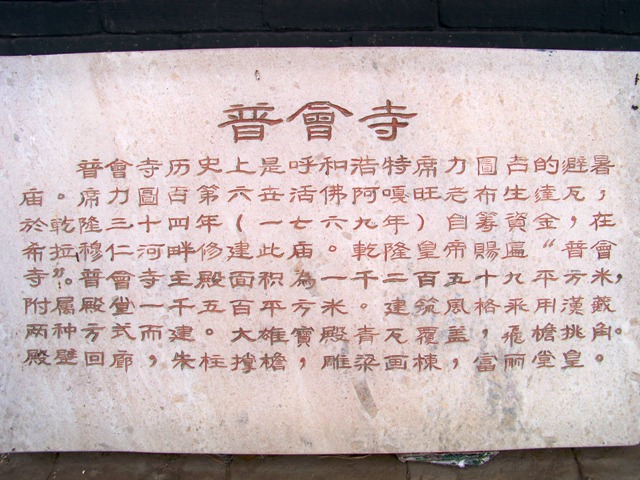 普會寺
普會寺历史上是呼和浩特席力圖召的避暑
庙。席力圖召第六世活佛阿嘎旺老布生達瓦，
於乾隆三十四年（一七六九年）自筹資金，在
希拉穆仁河畔修建此庙。乾隆皇帝賜匾“普會
寺”。普會寺主殿面积為一千二百五十九平方米，
附属殿堂一千五百平方米。建筑風格采用漢藏
两种方式而建。大雄寶殿青瓦覆盖，飛檐挑角。
殿壁回廊，朱柱撑檐，雕梁画棟，富丽堂皇。